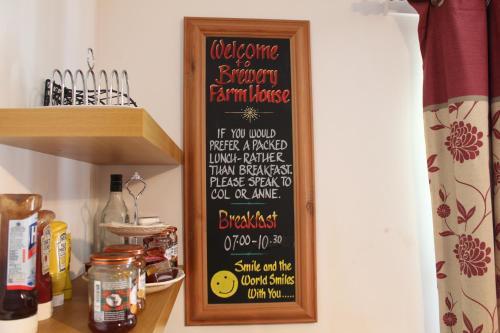 Welcome
to
Brewery
Farm House
IF YOU WOULD
PREFER A PACKED
LUNCH-RATHER
THAN BREAKFAST.
PLEASE SPEAK TO
COL OR ANNE.
Breakfast
07.00-10.30
Smile and the
World Smiles
With You.....